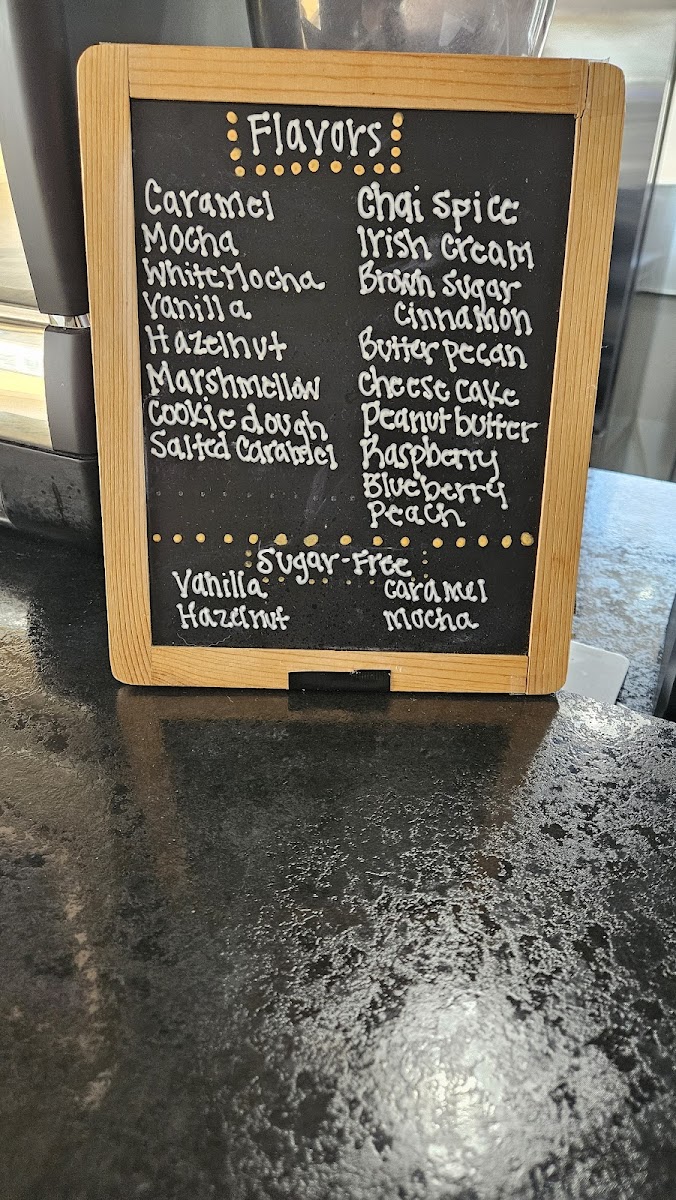 Flavors
Caramel
Mocha
White Mocha
Vanilla
Hazelnut
Marshmellow
Cookie dough
Salted Caramel
Chai Spice
Irish Cream
Brown Sugar
Cinnamon
Butter pecan
Cheese cake
Peanut butter
Raspberry
Blueberry
Peach
Sugar-Free
Vanilla
Hazelnut
Caramel
Mocha